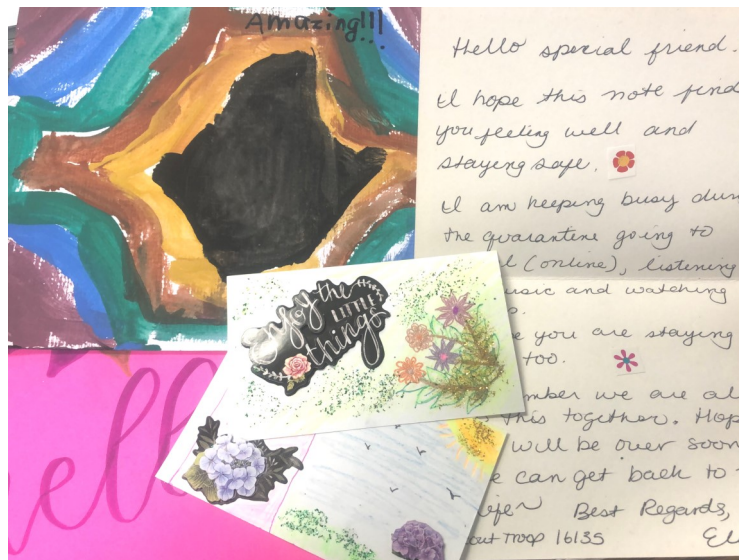 Amazing!!!
Hello special friend.
I hope this note find
you feeling well and
staying safe.
I am keeping busy
the quarantine going to
(online), listening
music and watching
you are staying
too.
we are
this together.
will be over soon
can get back to
Best Regards,
Troop 16135
Enjoy the
LITTLE
things
hell